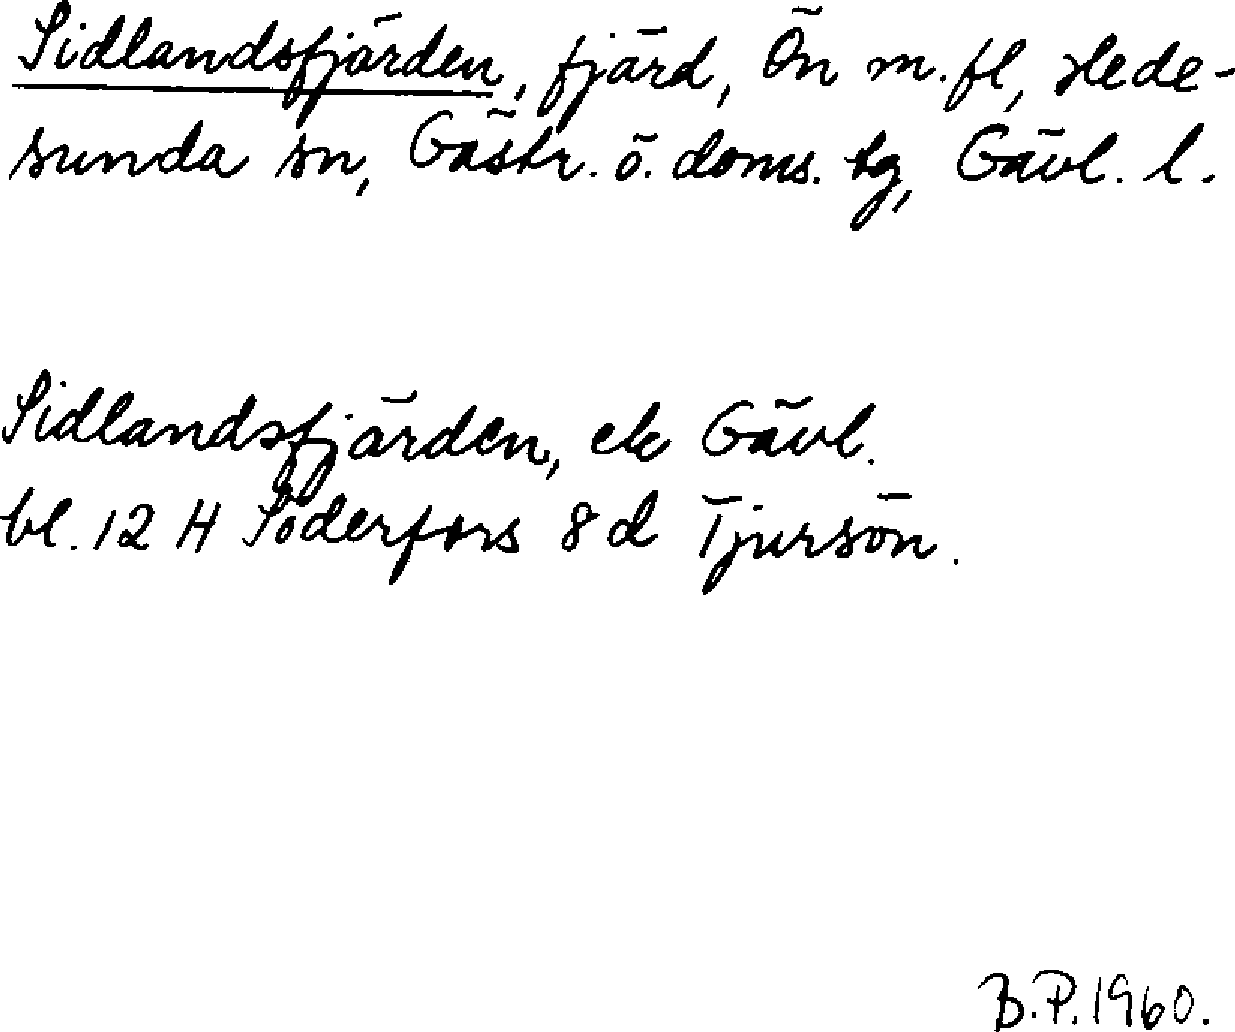 Sidlandsfjärden, fjärd, Ön m.fl, Hede-
sunda sn, Gästr. ö. doms. tg, Gävl. l.
Sidlandsfjärden, ek Gävl.
bl. 12 H Söderfors 8 d Tjursön.
B.P. 1960.